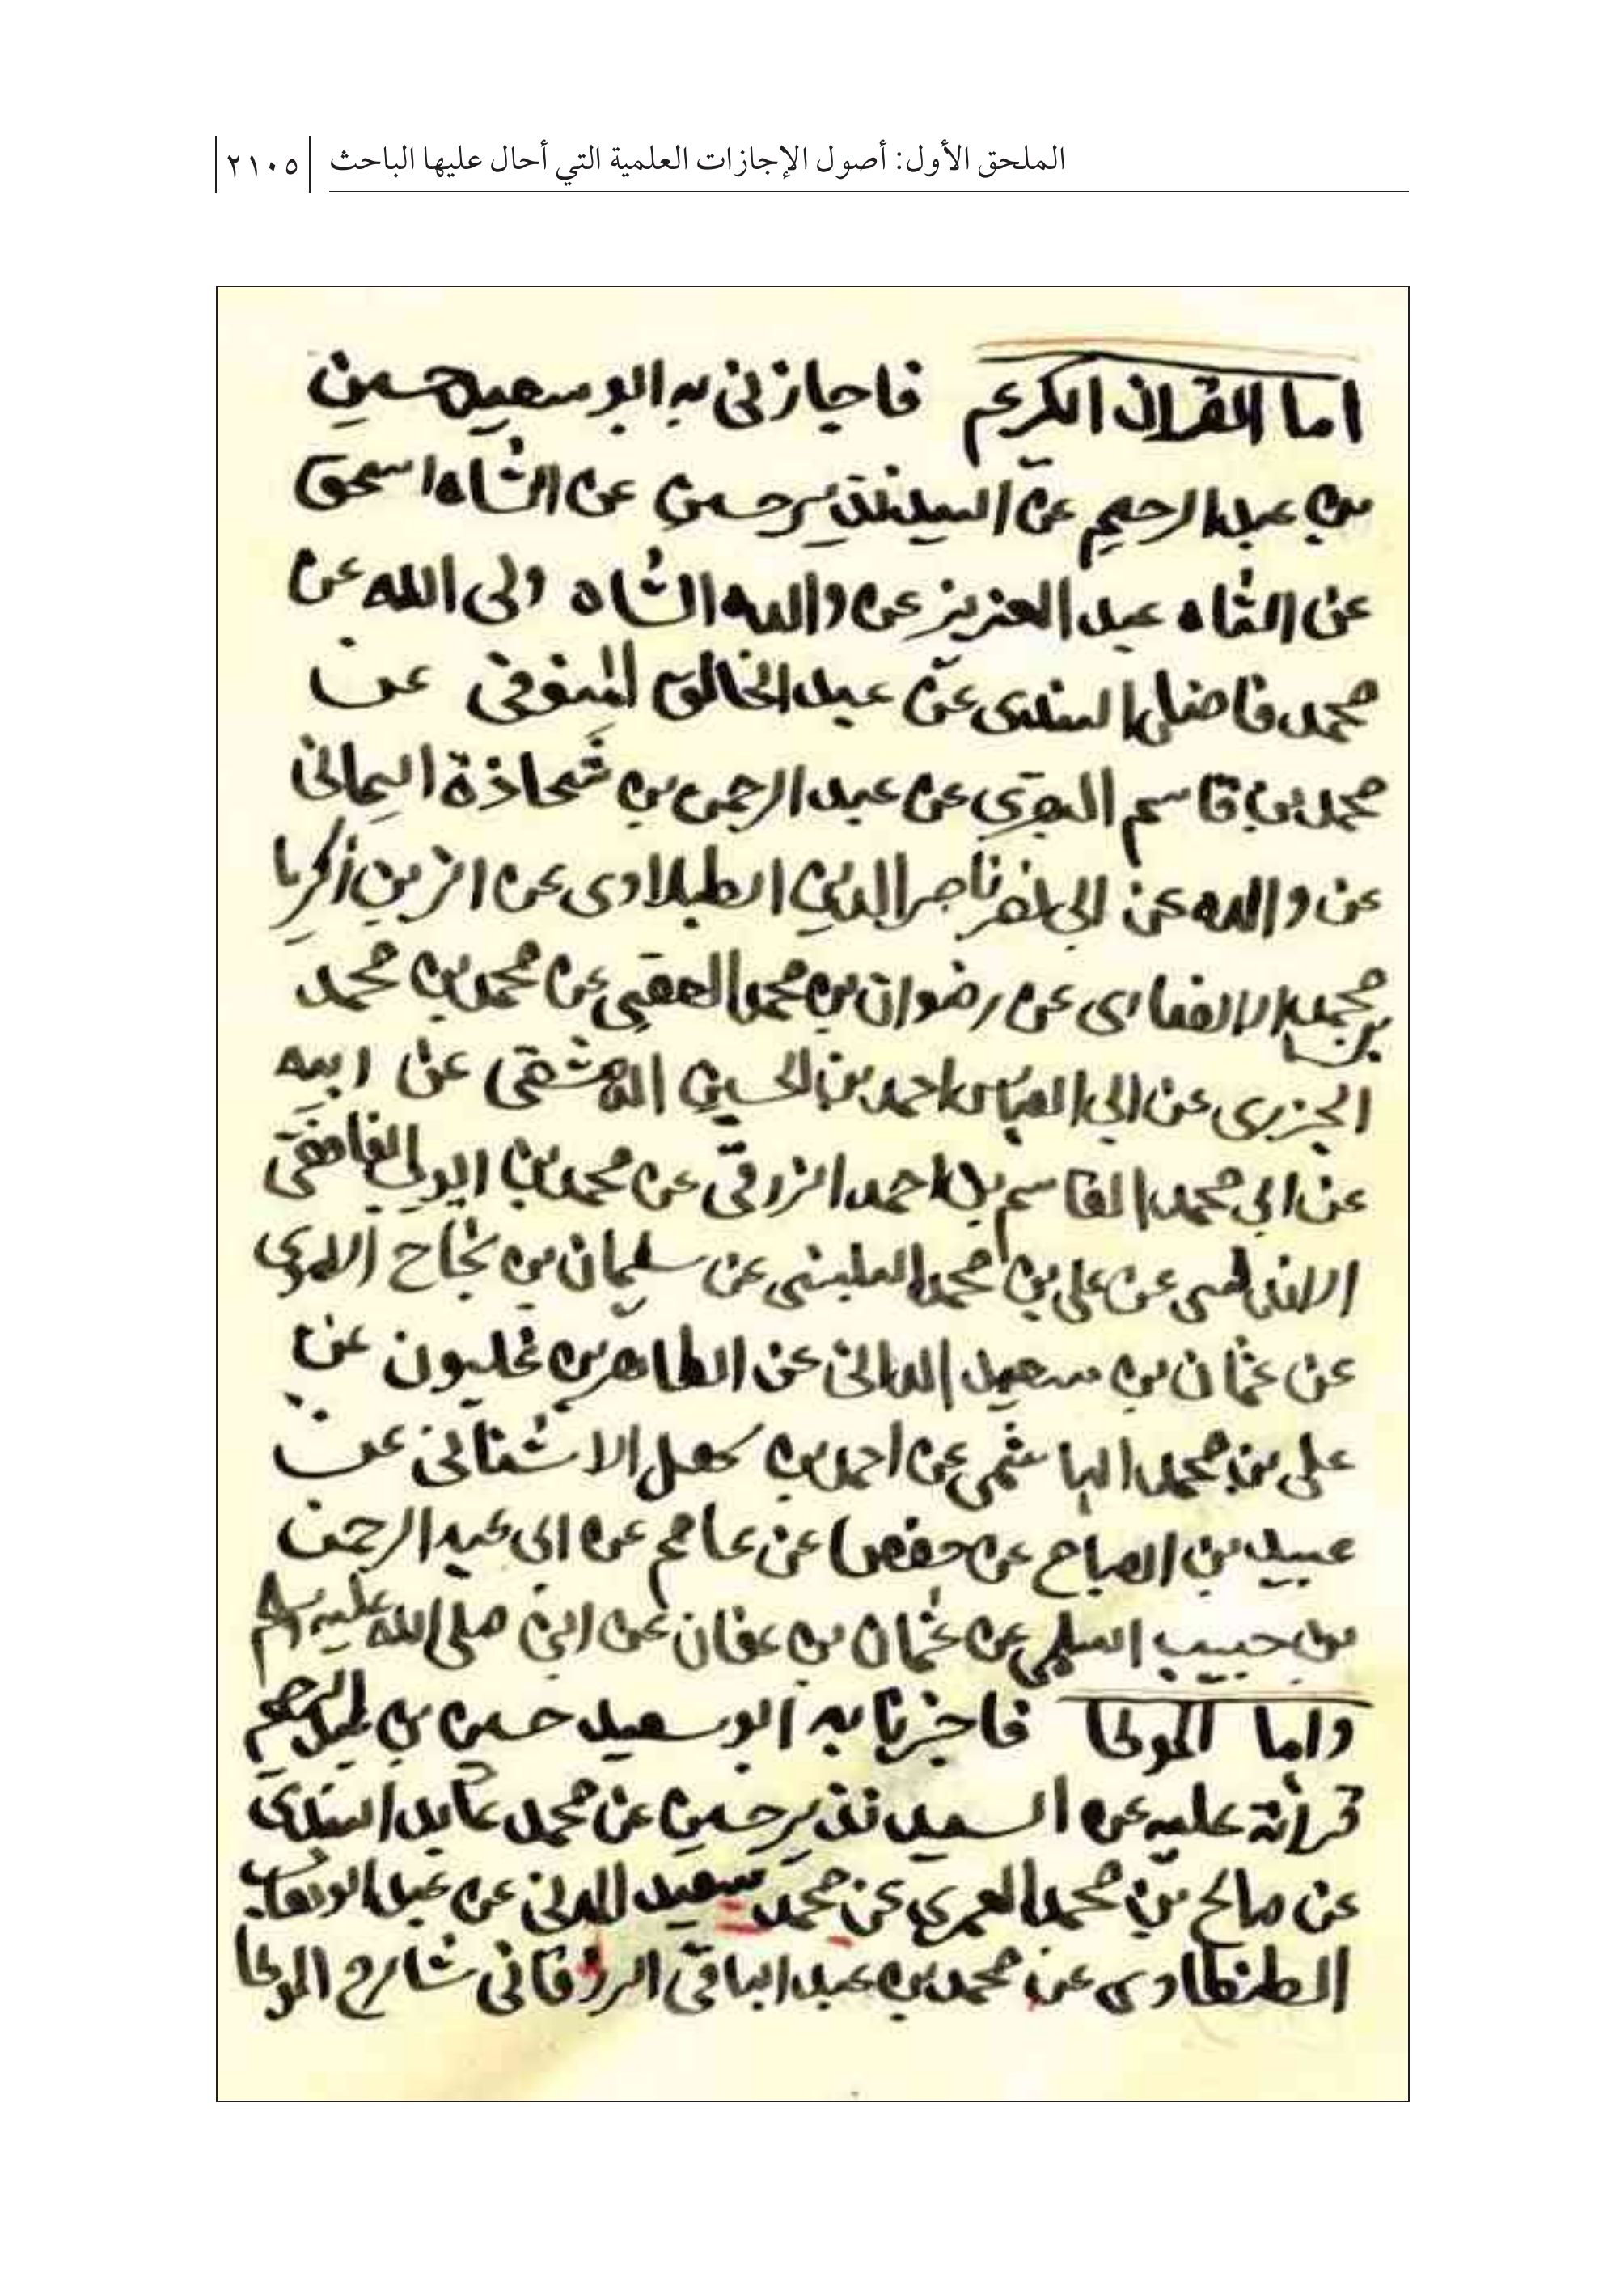 الملحق الأول: أصول الإجازات العلمية التي أحال عليها الباحث ٢١٠٥
اما القران الكريم فاجازني به ابو سعيد حسين
بن عبد الرحيم عن السيد نذير حسين عن الشاه اسحق
عن الشاه عبد العزيز عن والده الشاه ولى الله عن
محمد فاضل السندى عن عبد الخالق المنوفى عن
محمد بن قاسم البقري عن عبد الرحمن بن شحاذة اليمانى
عن والده عن ابى نصر ناصر الدين الطبلاوى عن الزين زكريا
بن محمد الانصارى عن رضوان بن محمد العقبى عن محمد بن محمد
الجزرى عن ابى العباس احمد بن الحسين الدمشقى عن ابيه
عن ابى محمد القاسم بن احمد عن محمد بن ايوب الغافقى
الاندلسى عن على بن محمد البلنسى عن سليمان بن نجاح الاموى
عن عثمان بن سعيد الدانى عن الطاهر بن غلبون عن
على بن محمد الهاشمى عن احمد بن سهل الاشنانى عن
عبيد بن الصباح عن حفص عن عاصم عن ابى عبد الرحمن
بن حبيب السلمى عن عثمان بن عفان عن النبى صلى الله عليه وسلم
واما الموطا فاخبرنا به ابو سعيد حسين بن عبد الرحيم
قرائة عليه عن السيد نذير حسين عن محمد عابد السندى
عن صالح بن محمد العمرى عن محمد سعيد المدنى عن عبد الوهاب
الطنطاوى عن محمد بن عبد الباقى الزرقانى شارح الموطا